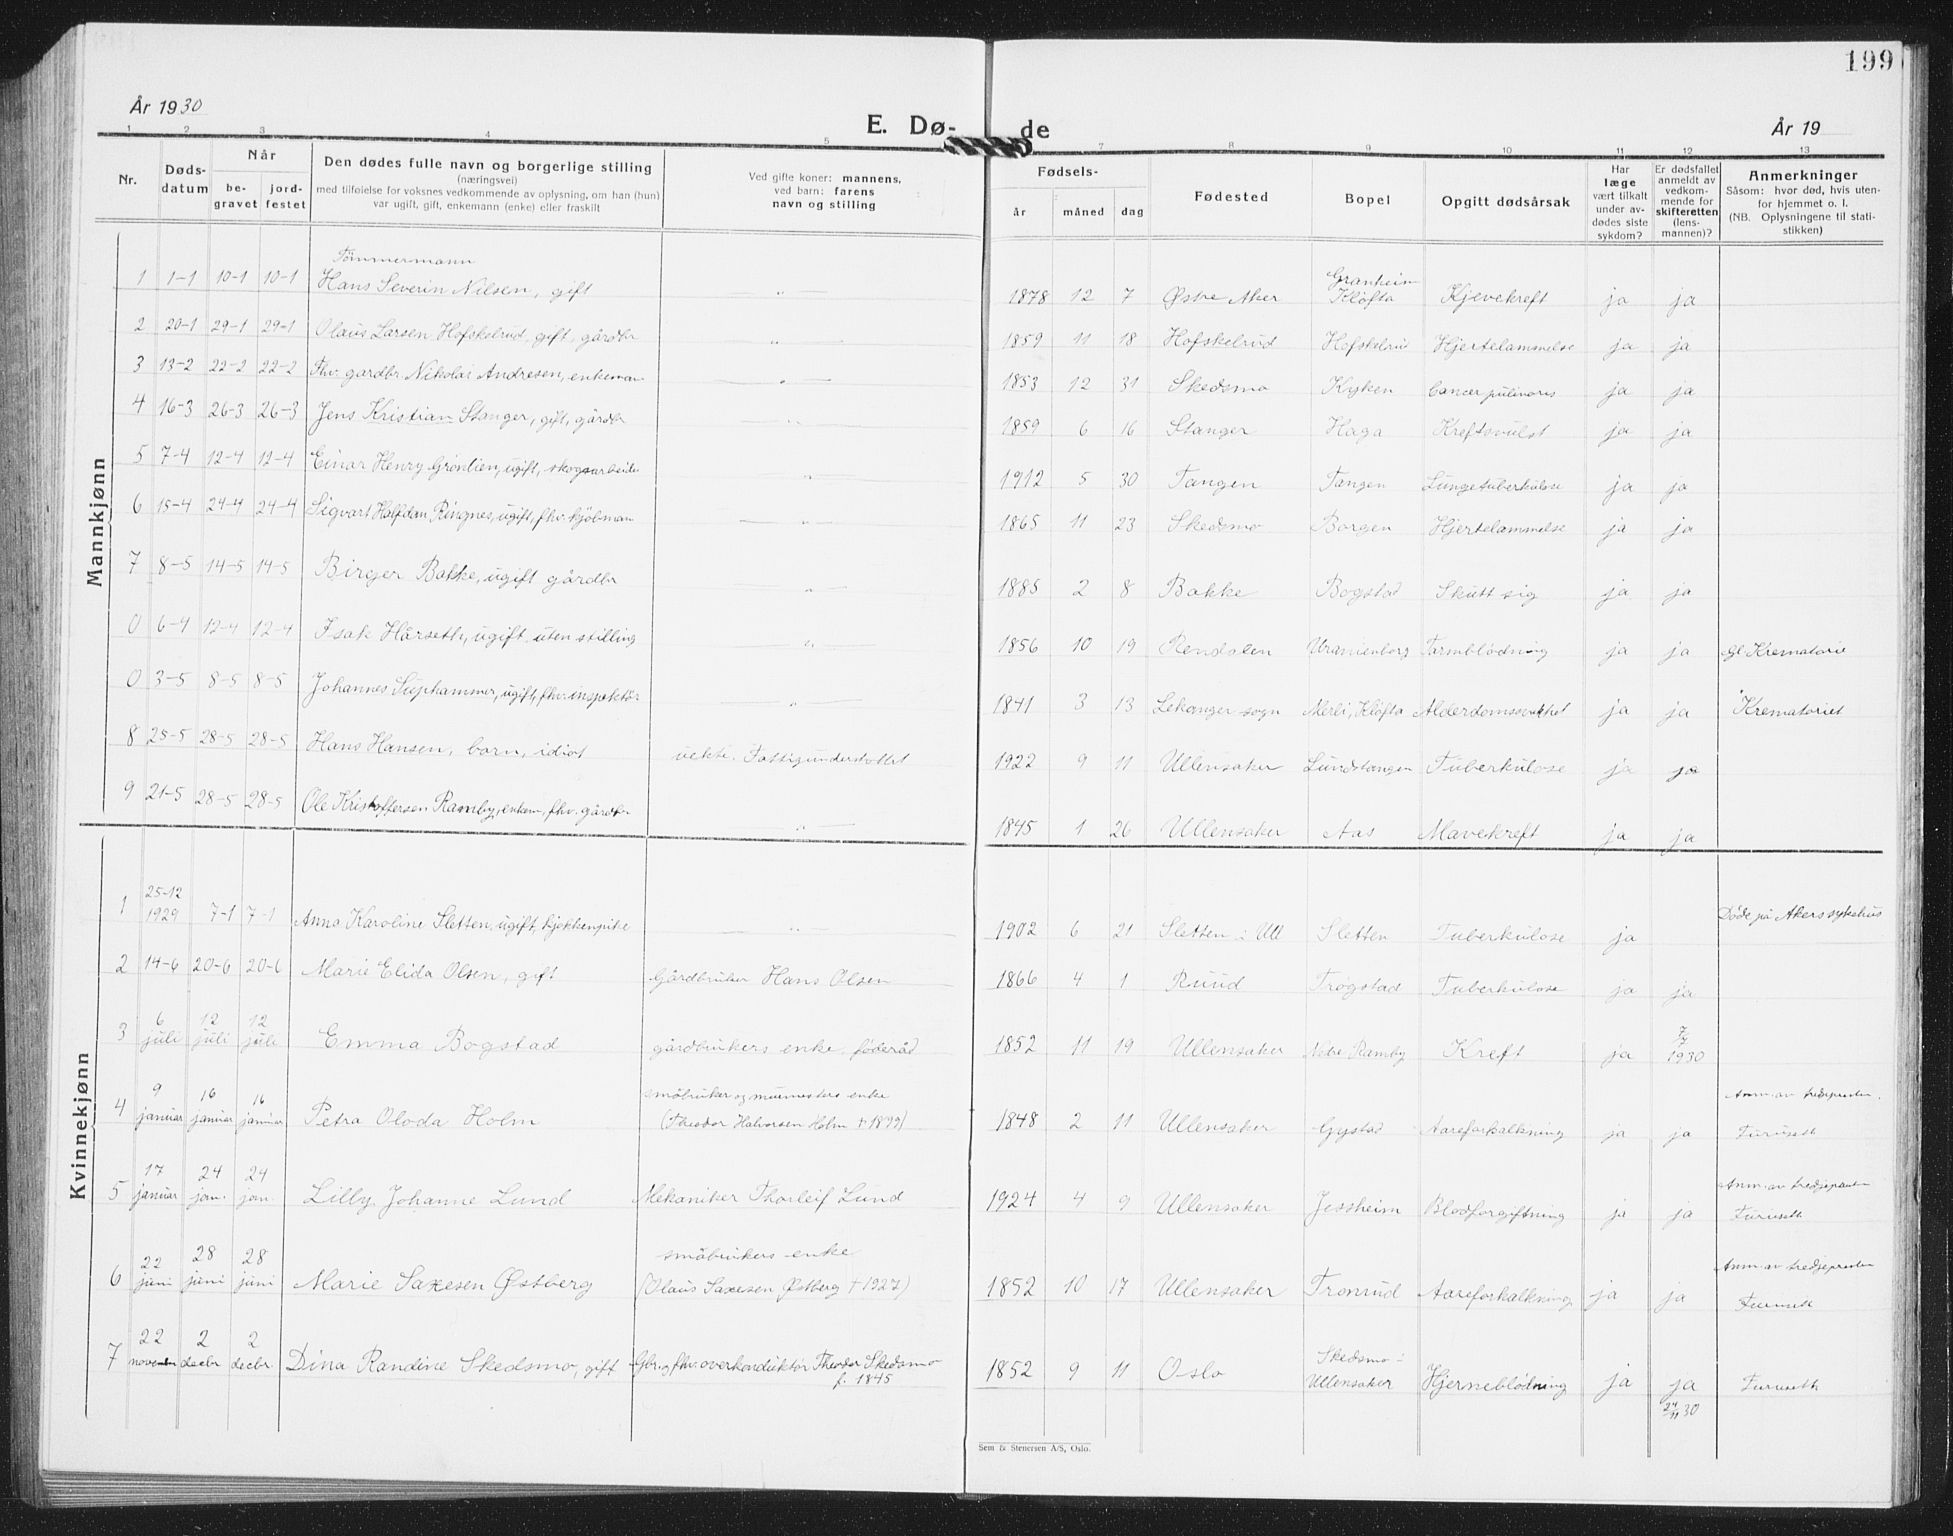 199
År 1930
E. Dø-
de
År 19
1 2 3 4 5 7 8 9 10 11 12 13
Nr.
Døds-
datum
Når
be-
gravet
jord-
festet
Den dødes fulle navn og borgerlige stilling
(næringsvei)
med tilføielse for voksnes vedkommende av oplysning, om han (hun)
var ugift, gift, enkemann (enke) eller fraskilt
Ved gifte koner: mannens,
ved barn: farens
navn og stilling
Fødsels-
år
måned
dag
Fødested
Bopel
Opgitt dødsårsak
Har
læge
vært tilkalt
under av-
dødes siste
sykdom?
Er dødsfallet
anmeldt av
vedkom-
mende for
skifteretten
(lens-
mannen)?
Anmerkninger
Såsom: hvor død, hvis uten-
for hjemmet o. l.
(NB. Oplysningene til stati-
stikken)
Mannkjønn
Tömmermann
1 1-1 10-1 10-1 Hans Severin Nilsen, gift " 1878 12 7 Østre Aker Granheim Kløfta Kjevekreft ja ja
2 20-1 29-1 29-1 Olaus Larsen Hofskelrud, gift, gårdbr " 1859 11 18 Hofskelrud Hofskelrud Hjertelammelse ja ja
3 13-2 22-2 22-2 Fhv. gardbr. Nikolai Andresen, enkeman " 1853 12 31 Skedsmo Kyken Cancer pulmoris ja ja
4 16-3 26-3 26-3 Jens Kristian Stanger, gift, gårdbr 1859 6 16 Stanger Haga Kreftsvulst ja ja
5 7-4 12-4 12-4 Einar Henry Grøntien, ugift, skogsarbeider " 1912 5 30 Tangen Tangen Lungetuberkulose ja ja
6 15-4 24-4 24-4 Sigvart Halfdan Ringnes, ugift, fhv. kjöbman " 1865 11 23 Skedsmo Borgen Hjertelammelse ja ja
7 8-5 14-5 14-5 Birger Bakke, ugift gårdbr " 1885 2 8 Bakke Bogstad Skutt sig ja ja
0 6-4 12-4 12-4 Isak Hårseth, ugift, uten stilling " 1856 10 19 Rendalen Uranienborg Tarmblödning ja ja Gl Krematorie
0 3-5 8-5 8-5 Johannes Suphammer, ugift, fhv. inspektör " 1841 3 13 Lekanger sogn Merli, Kløfta Alderdomssvakhet ja ja " Krematoriet
8 25-5 28-5 28-5 Hans Hansen, barn, idiot uekte. Fattigunderstøttet 1922 9 11 Ullensaker Lundstangen Tuberkulose ja ja
9 21-5 28-5 28-5 Ole Kristoffersen Ramby, enkem, fhv. gårdbr " 1845 1 26 Ullensaker Aas Mavekreft ja ja
Kvinnekjønn
1 25-12 1929 7-1 7-1 Anna Karoline Sletten, ugift, kjøkkenpike " 1902 6 21 Sletten i Ull Sletten Tuberkulose ja Døde på Akers sykehus
2 14-6 20-6 20-6 Marie Elida Olsen, gift Gårdbruker Hans Olsen 1866 4 1 Ruud Trøgstad Tuberkulose ja ja
3 6 juli 12 juli 12 juli Emma Bogstad gårdbrukers enke, føderåd 1852 11 19 Ullensaker Nedre Ramby Kreft ja 7/7 1930
4 9 januar 16 januar 16 januar Petra Oloda Holm småbruker og murmesters enke (Theodor Halvorsen Holm + 1899) 1848 2 11 Ullensaker Gystad Aareforkalkning ja ja Anm. av tredjepresten. Furuseth
5 17 januar 24 jan. 24 jan. Lilly Johanne Lund Mekaniker Thorleif Lund 1924 4 9 Ullensaker Jessheim Blodforgiftning ja ja Anm. av tredjepresten Furuseth
6 22 juni 28 juni 28 juni Marie Saxesen Østberg småbrukers enke (Olaus Saxesen Østberg + 1927) 1852 10 17 Ullensaker Tronrud Aareforkalkning ja ja Anm. av tredjepresten Furuseth
7 22 november 2 decbr 2 decbr. Dina Randine Skedsmo, gift Gbr. og fhv. overkonduktör Theodor Skedsmo f. 1845 1852 9 11 Oslo Skedsmo i Ullensaker Hjerneblödning ja ja 24/11 30 Furuseth
Sem & Stenersen A/S, Oslo.